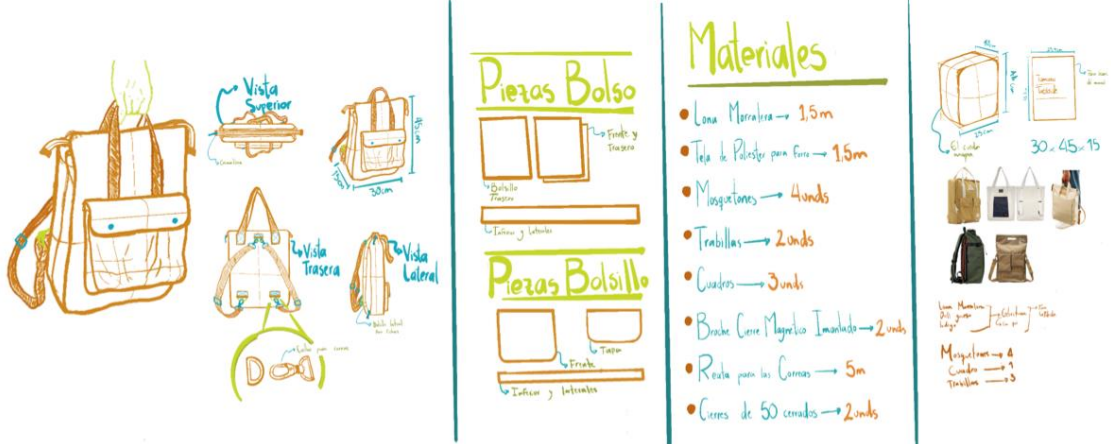 Vista
Superior
Cremallera
45cm
15cm
30cm
Vista
Trasera
Vista
Lateral
Piezas Bolso
Frente y
Trasera
Bolsillo
Trasero
Inferior y laterales
Piezas Bolsillo
Frente
Tapa
Inferior y laterales
Materiales
Lona Morralera → 1,5m
Tela de Poliester para forro → 1,5m
Mosquetones → 4unds
Trabillas → 2unds
Cuadros → 3unds
Broche Cierre Magnético Imantado → 2unds
Reata para las Correas → 5m
Cierres de 50 cerrados → 2unds
15cm
30 x 45 x 15
Lona Morralera
Mosquetones → 4
Cuadro →
Trabillas → 3